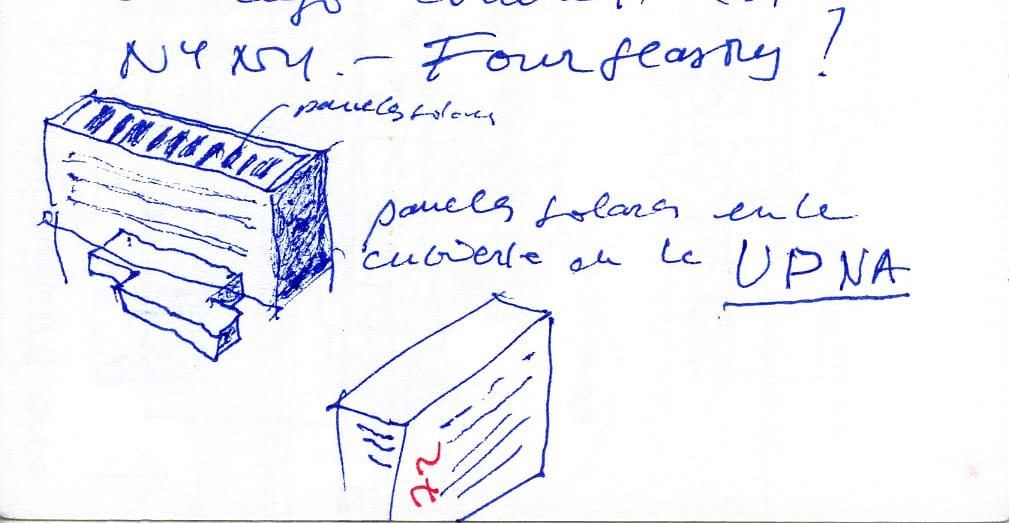 NY NY. – Four Seasons!
paneles solares
paneles solares en la
cubierta de la UPNA
72